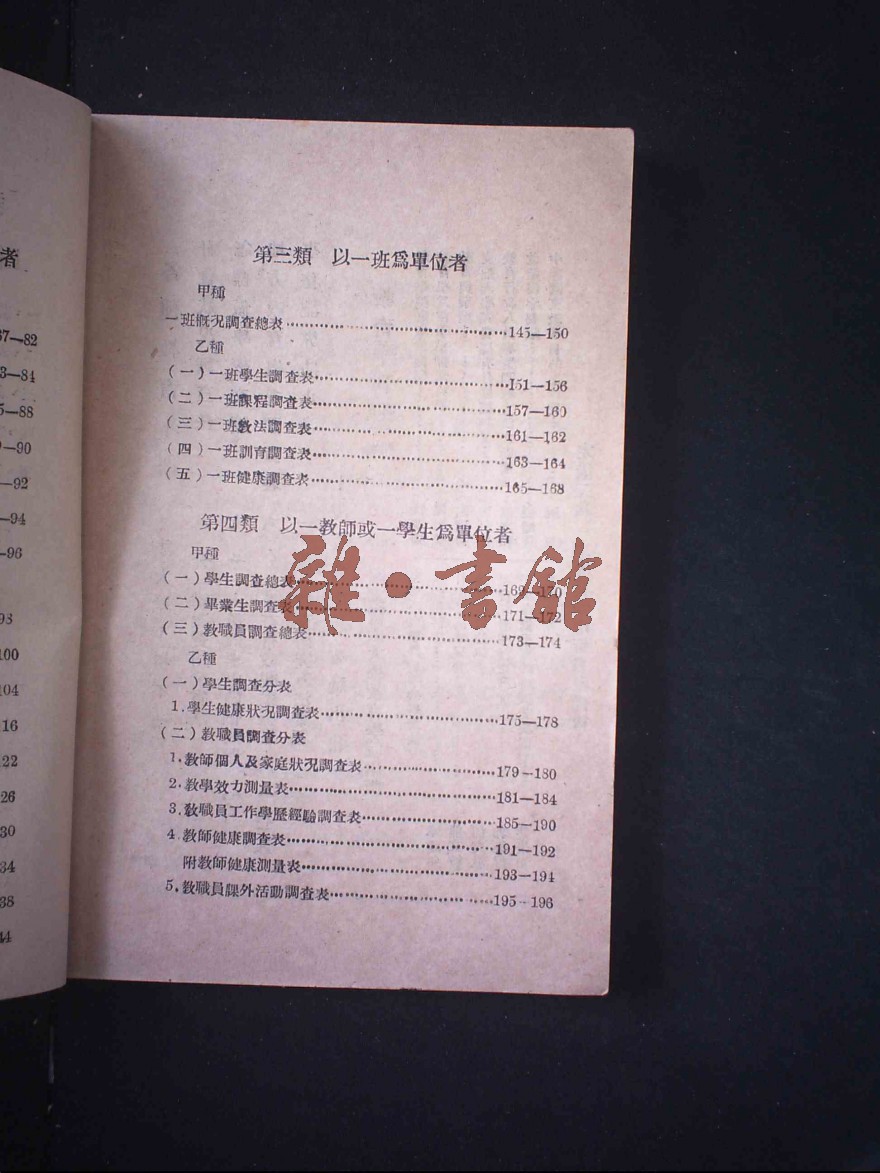 者
67—82
3—84
5—88
—90
—92
—94
—96
98
100
104
116
122
126
130
134
138
144
第三類 以一班爲單位者
甲種
一班概況調查總表 145—150
乙種
(一)一班學生調查表 151—156
(二)一班課程調查表 157—160
(三)一班教法調查表 161—162
(四)一班訓育調查表 163—164
(五)一班健康調查表 165—168
第四類 以一教師或一學生爲單位者
甲種
(一)學生調查總表 169—170
(二)畢業生調查表 171—172
(三)教職員調查總表 173—174
乙種
(一)學生調查分表
1.學生健康狀況調查表 175—178
(二)教職員調查分表
1.教師個人及家庭狀況調查表 179—180
2.教學效力測量表 181—184
3.教職員工作學歷經驗調查表 185—190
4.教師健康調查表 191—192
附教師健康測量表 193—194
5.教職員課外活動調查表 195—196
雜·書館